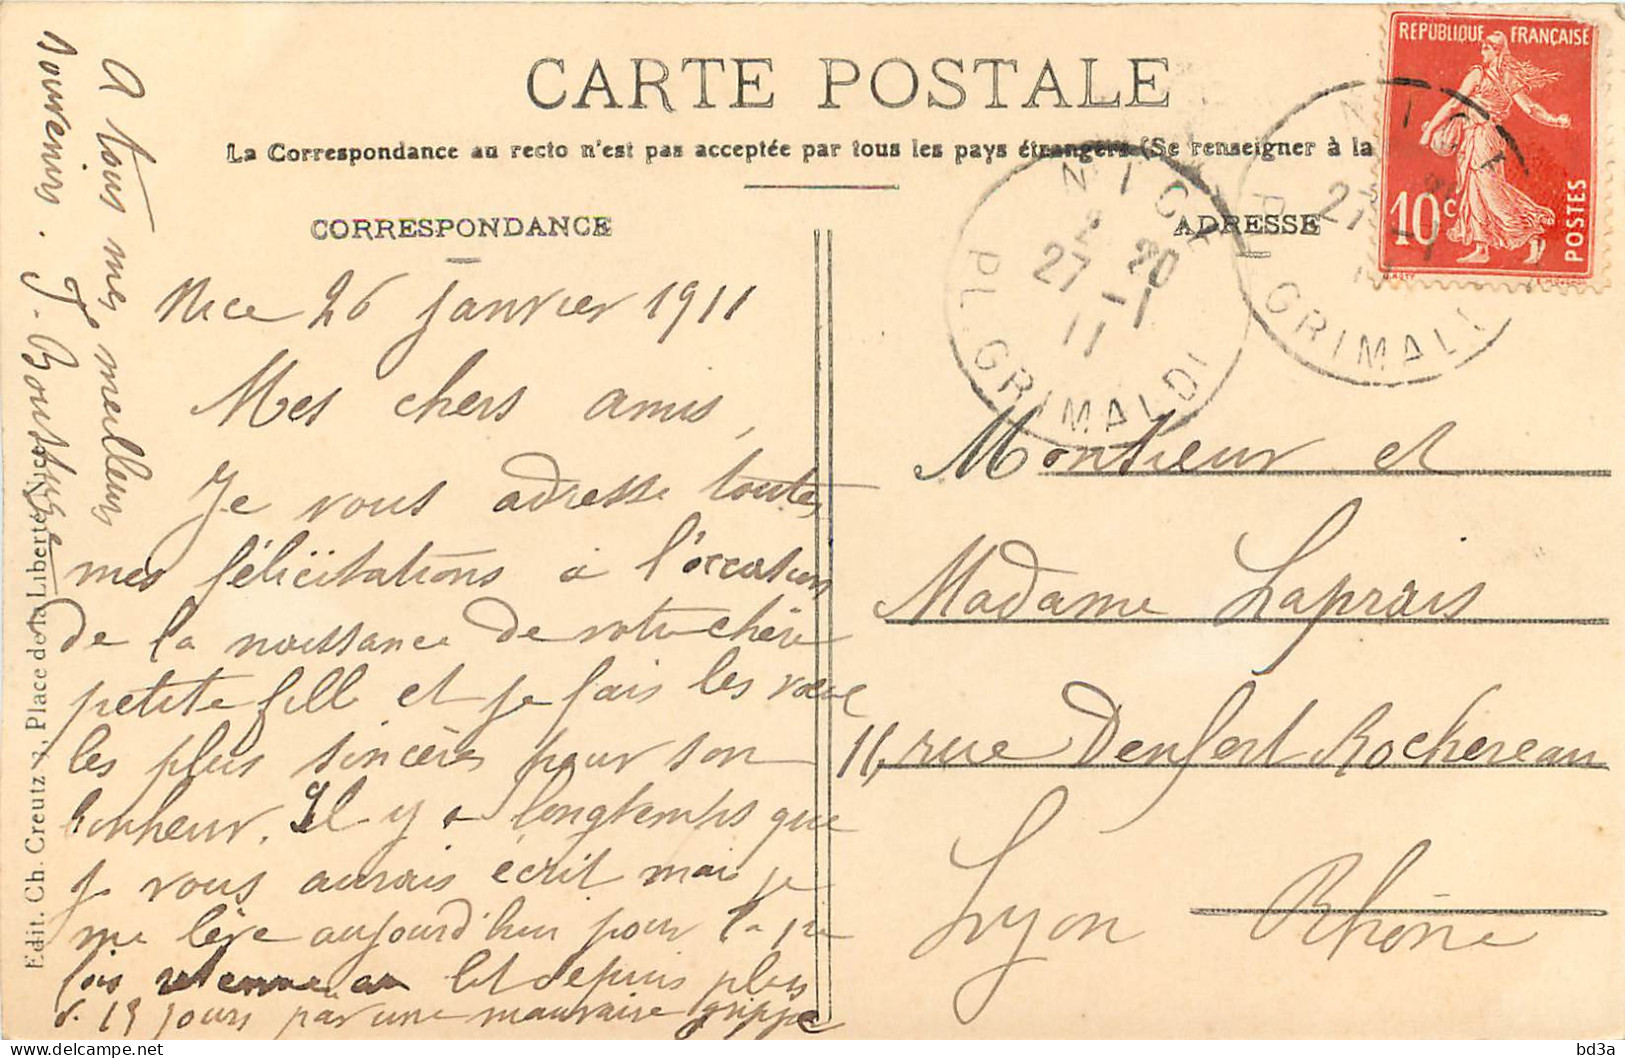 CARTE POSTALE
La Correspondance au recto n'est pas acceptée par tous les pays étrangers (Se renseigner à la
CORRESPONDANCE
ADRESSE
REPUBLIQUE FRANÇAISE
10c
POSTES
NICE
2 20
27 -1
11
PL. GRIMALDI
NICE
27 -1
PL. GRIMALDI
Nice 26 janvier 1911
Mes chers amis,
Je vous adresse toutes
mes félicitations à l'occasion
de la naissance de votre chère
petite fille et je fais les vœux
les plus sincères pour son
bonheur. Il y a longtemps que
je vous aurais écrit mais je
me lève aujourd'hui pour la 1re
fois retenue au lit depuis plus
de 15 jours par une mauvaise grippe
A tous mes meilleurs
souvenirs.
Monsieur et
Madame Laprais
11, rue Denfert Rochereau
Lyon Rhône
Edit. Ch. Creutz 3, Place de la Liberté, Nice
bd3a